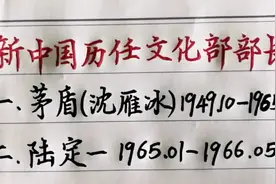 新中国历任文化部部长
一、茅盾(沈雁冰)1949.10-1965
二、陆定一 1965.01-1966.05